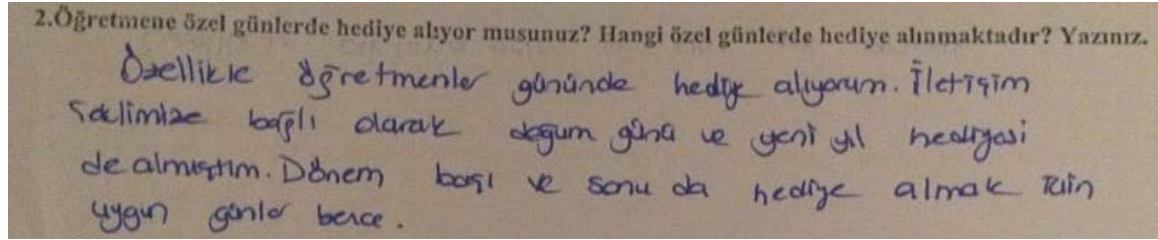 2.Öğretmene özel günlerde hediye alıyor musunuz? Hangi özel günlerde hediye alınmaktadır? Yazınız.
Özellikle öğretmenler gününde hediye alıyorum. İletişim
Şeklimize bağlı olarak doğum günü ve yeni yıl hediyesi
de almıştım. Dönem başı ve sonu da hediye almak için
uygun günler bence.